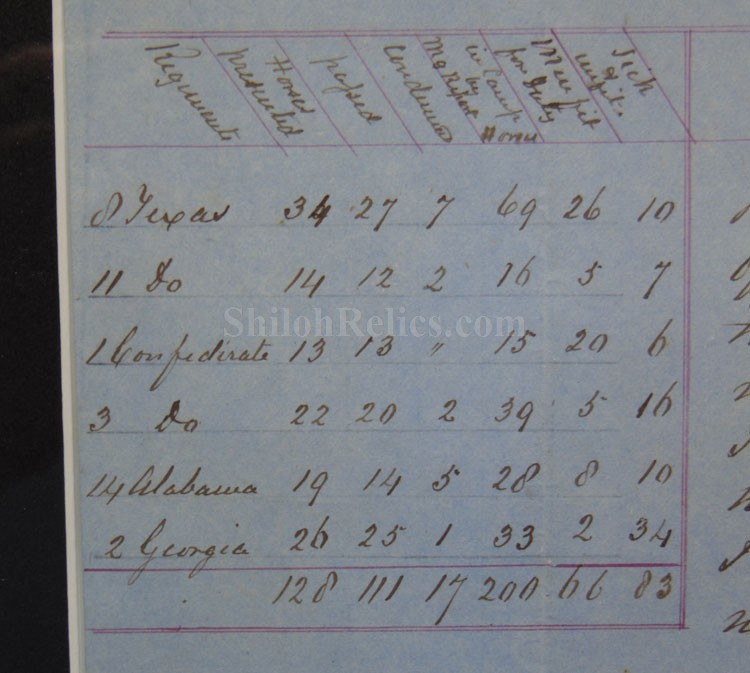 Regiments
Horses presented
passed
Condemned
Mo Report by in Camp Horses
Men fit for Duty
Sick & unfit.
8 Texas 34 27 7 69 26 10
11 Do 14 12 2 16 5 7
ShilohRelics.com
1 Confederate 13 13 " 15 20 6
3 Do 22 20 2 39 5 16
14 Alabama 19 14 5 28 8 10
2 Georgia 26 25 1 33 2 34
128 111 17 200 66 83